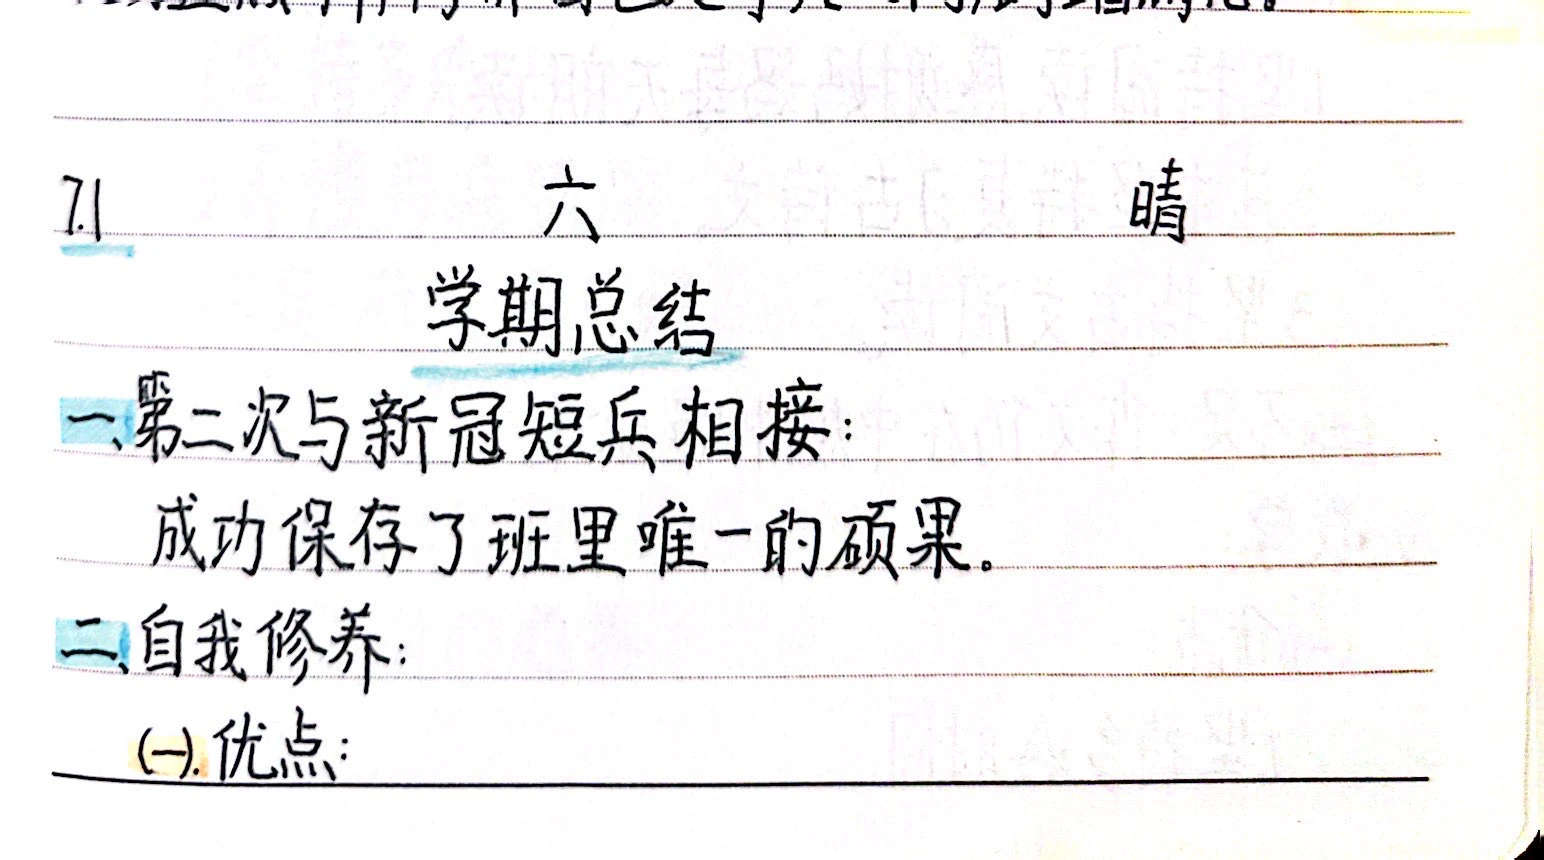 7.1 六 晴
学期总结
一、第二次与新冠短兵相接:
成功保存了班里唯一的硕果。
二、自我修养:
(一).优点: